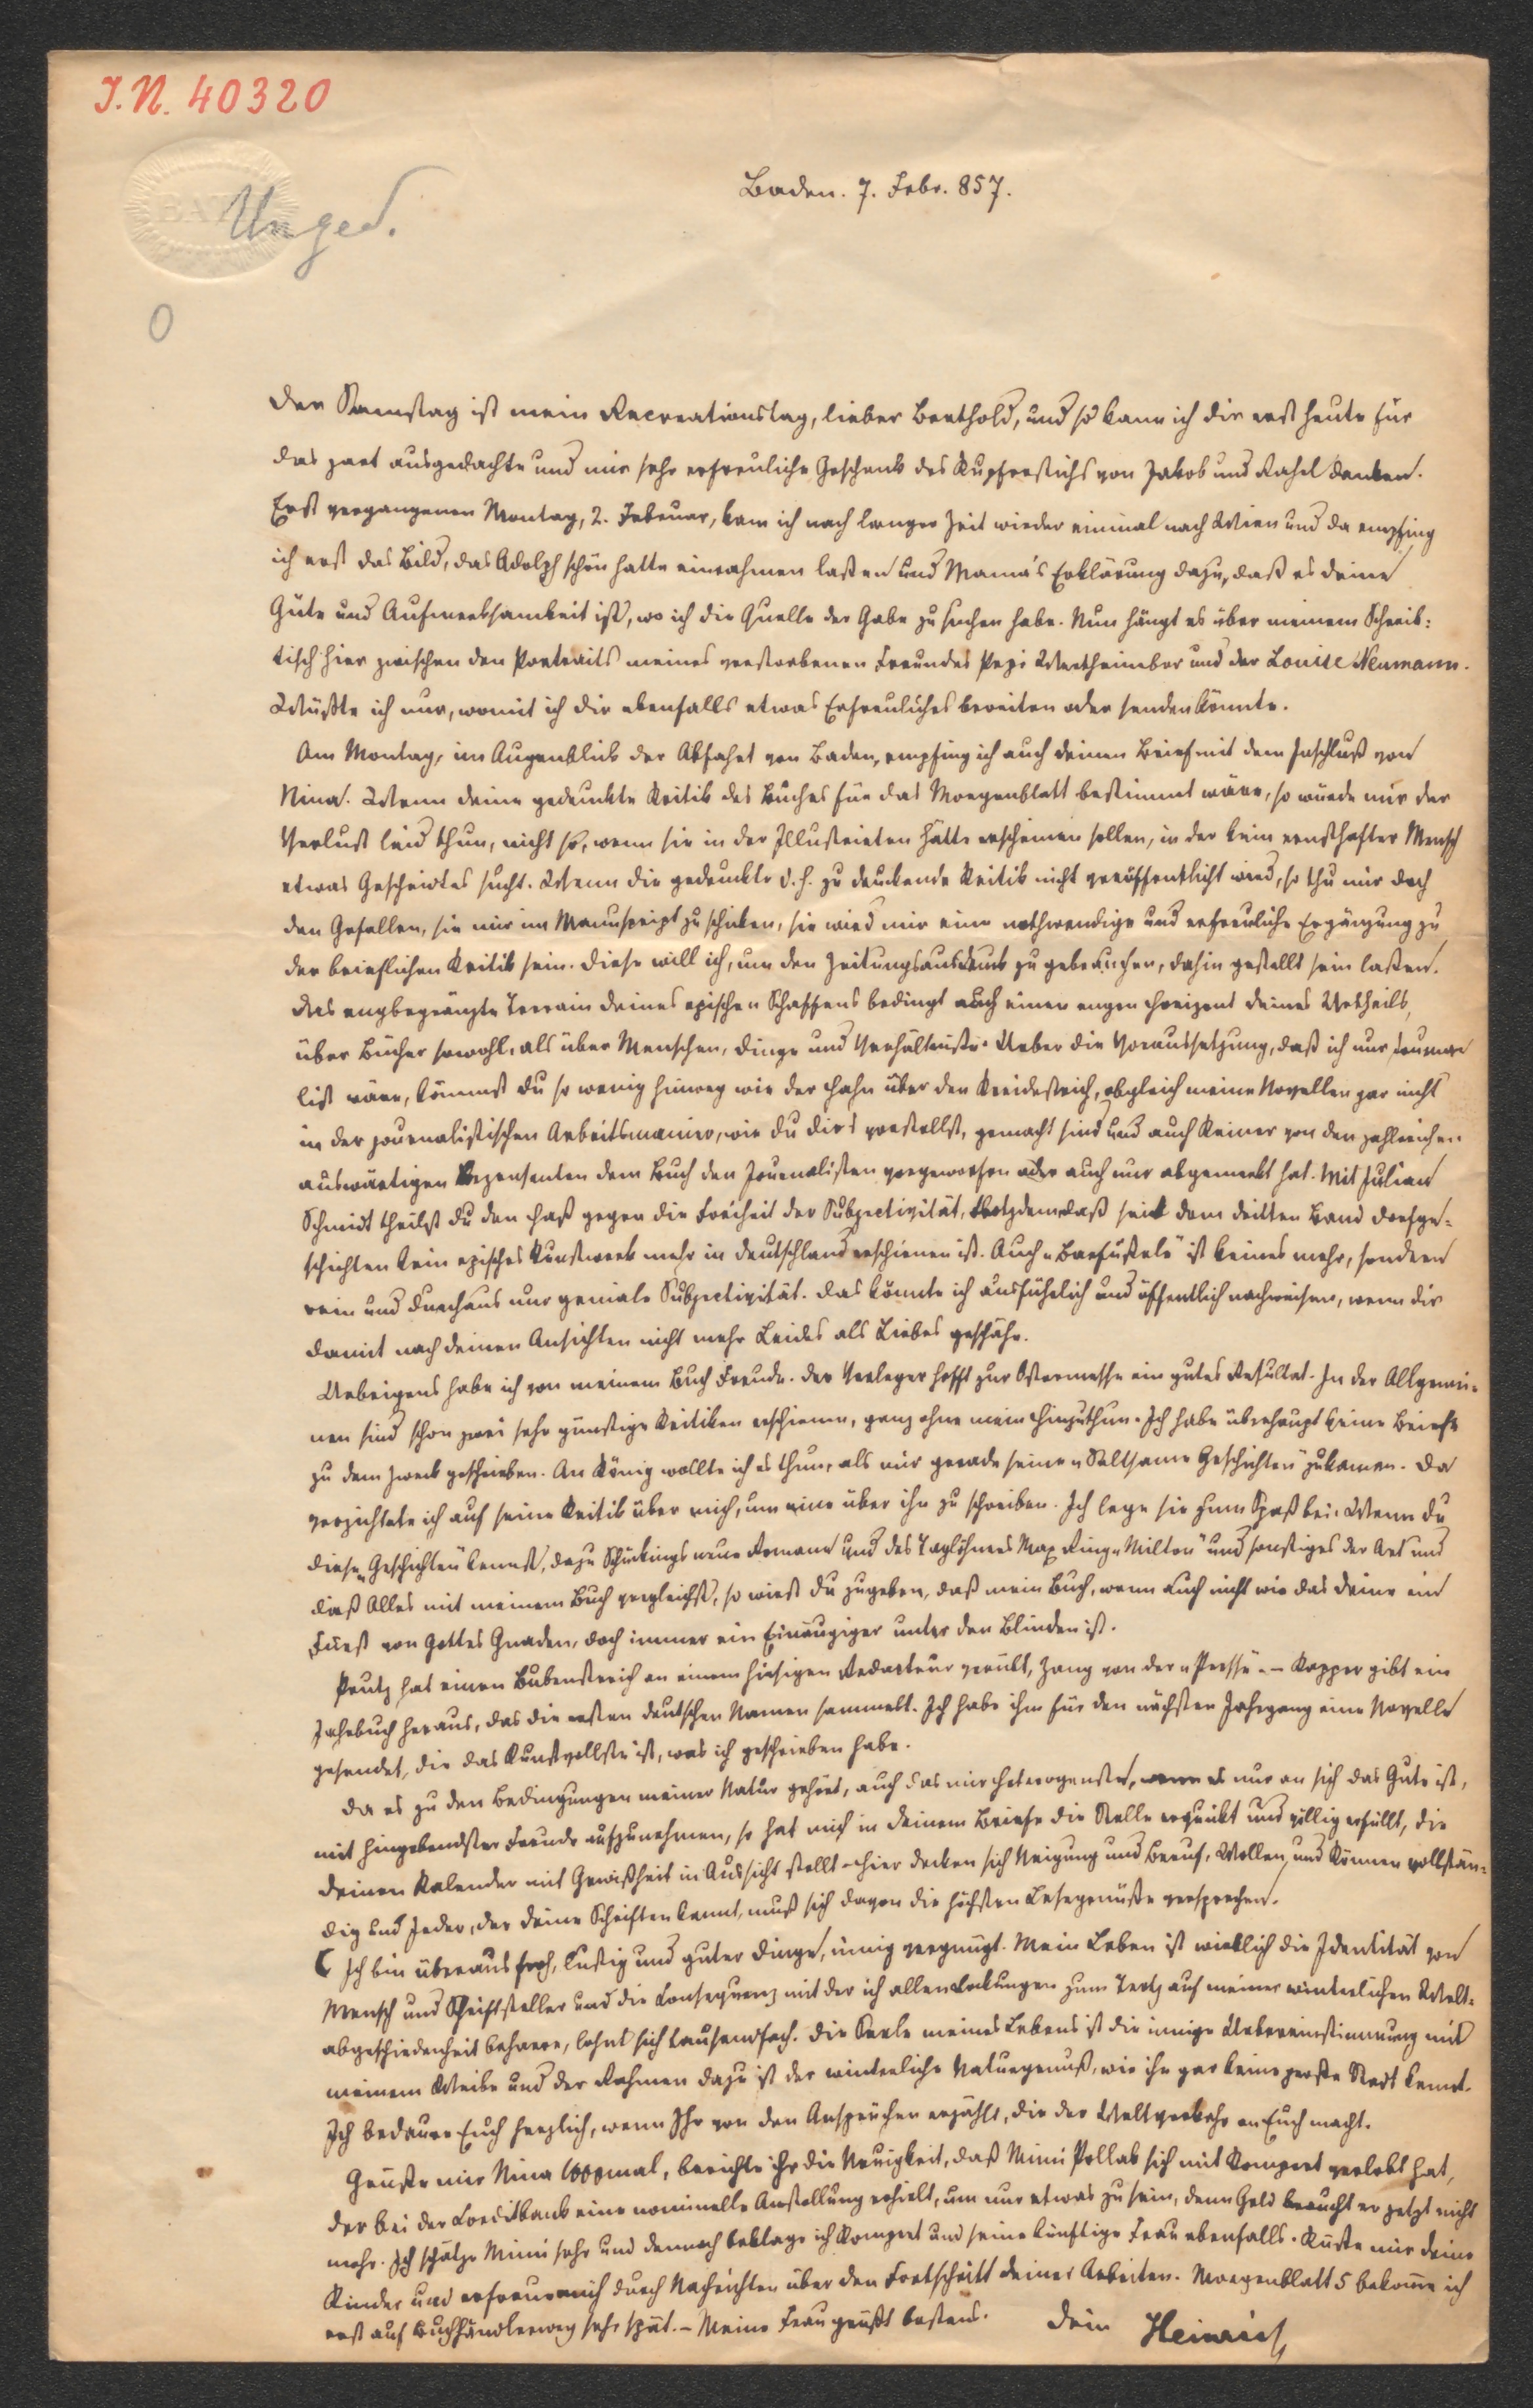 I.N. 40320
Unged.
0
Baden. 7. Febr. 857.
Der Samstag ist mein Recreationstag, lieber Berthold, und so kann ich dir erst heute für
das zart ausgedachte und mir sehr erfreuliche Geschenk des Kupferstichs von Jakob und Rahel danken.
Erst vergangenen Montag, 2. Februar, kam ich nach langer Zeit wieder einmal nach Wien und da empfing
ich erst das Bild, das Adolph schön hatte einrahmen laßen und Mama's Erklärung dazu, daß es deine
Güte und Aufmerksamkeit ist, wo ich die Quelle der Gabe zu suchen habe. Nun hängt es über meinem Schreib:
tisch hier zwischen den Portraits meines verstorbenen Freundes Pepi Wertheimber und der Louise Neumann.
Wüßte ich nur, womit ich dir ebenfalls etwas Erfreuliches bereiten oder senden könnte.
Am Montag, im Augenblick der Abfahrt von Baden, empfing ich auch deinen Brief mit dem Inschluß von
Nina. Wenn deine gedruckte Kritik des Buches für das Morgenblatt bestimmt wäre, so würde mir der
Verlust leid thun, nicht so, wenn sie in der Illustrirten hätte erscheinen sollen, in der kein ernsthafter Mensch
etwas Gescheidtes sucht. Wenn die gedruckte d. h. zu druckende Kritik nicht veröffentlicht wird, so thu mir doch
den Gefallen, sie mir im Manuscript zu schicken, sie wird mir eine nothwendige und erfreuliche Ergänzung zu
der brieflichen Kritik sein. Diese will ich, um den Zeitungsausdruck zu gebrauchen, dahin gestellt sein laßen.
Das engbegränzte Terrain deines epischen Schaffens bedingt auch einen engen Horizont deines Urtheils,
über Bücher sowohl, als über Menschen, Dinge und Verhältniße. Ueber die Voraussetzung, daß ich nur Journa
list wäre, kömmst du so wenig hinweg wie der Hahn über den Kreidestrich, obgleich meine Novellen gar nicht
in der journalistischen Arbeitsmanier, wie du dir's vorstellst, gemacht sind und auch Keiner von den zahlreichen
auswärtigen Rezensenten dem Buch den Journalisten vorgeworfen oder auch nur abgemerkt hat. Mit Julian
Schmidt theilst du den Haß gegen die Freiheit der Subjectivität, trotzdem daß seit dem dritten Band Dorfge-
schichten kein episches Kunstwerk mehr in Deutschland erschienen ist. Auch "Barfüßele" ist keines mehr, sondern
rein und durchaus nur geniale Subjectivität. Das könnte ich ausführlich und öffentlich nachweisen, wenn dir
damit nach deinen Ansichten nicht mehr Leides als Liebes geschähe.
Uebrigens habe ich von meinem Buch Freude. Der Verleger hofft zur Ostermesse ein gutes Resultat. In der Allgemei-
nen sind schon zwei sehr günstige Kritiken erschienen, ganz ohne mein Hinzuthun. Ich habe überhaupt keine Briefe
zu dem Zweck geschrieben. An König wollte ich es thun, als mir gerade seine "Seltsame Geschichten" zukamen. Da
verzichtete ich auf seine Kritik über mich, um eine über ihn zu schreiben. Ich lege sie zum Spaß bei. Wenn du
diese "Geschichten" kennst, dazu Schückings neue Romane und des Taglöhners Max Ring "Milton" und sonstiges der Art und
dieß Alles mit meinem Buch vergleichst, so wirst du zugeben, daß mein Buch, wenn auch nicht wie das deine ein
Fürst von Gottes Gnaden, doch immer ein Einäugiger unter den Blinden ist.
Prutz hat einen Bubenstreich an einem hiesigen Redacteur verübt, Zang von der "Presse". – Kapper gibt ein
Jahrbuch heraus, das die ersten deutschen Namen sammelt. Ich habe ihm für den nächsten Jahrgang eine Novelle
gesendet, die das Kunstvollste ist, was ich geschrieben habe.
Da es zu den Bedingungen meiner Natur gehört, auch das mir Heterogenste, wenn es nur an sich das Gute ist,
mit hingebendster Freude aufzunehmen, so hat mich in deinem Briefe die Stelle erquickt und völlig erfüllt, die
deinen Kalender mit Gewißheit in Aussicht stellt. Hier decken sich Neigung und Beruf, Wollen und Können vollstän-
dig und Jeder, der deine Schriften kennt, muß sich davon die höchsten Lesegenüße versprechen.
Ich bin überaus froh, lustig und guter Dinge, innig vergnügt. Mein Leben ist wirklich die Identität von
Mensch und Schriftsteller und die Consequenz mit der ich allen Lockungen zum Trotz auf meiner winterlichen Welt-
abgeschiedenheit beharre, lohnt sich tausendfach. Die Seele meines Lebens ist die innige Uebereinstimmung mit
meinem Weibe und der Rahmen dazu ist der winterliche Naturgenuß, wie ihn gar keine große Stadt kennt.
Ich bedaure Euch herzlich, wenn Ihr von den Ansprüchen erzählt, die der Weltverkehr an Euch macht.
Grüße mir Nina 1000mal, berichte ihr die Neuigkeit, daß Mimi Pollak sich mit Kompert verlobt hat,
der bei der Creditbank eine nominelle Anstellung erhielt, um nur etwas zu sein, denn Geld braucht er jetzt nicht
mehr. Ich schätze Mimi sehr und dennoch beklage ich Kompert und seine künftige Frau ebenfalls. Küße mir deine
Kinder und erfreue mich durch Nachrichten über den Fortschritt deiner Arbeiten. Morgenblatt 5 bekomme ich
erst auf Buchhändlerweg sehr spät. – Meine Frau grüßt bestens. Dein Heinrich